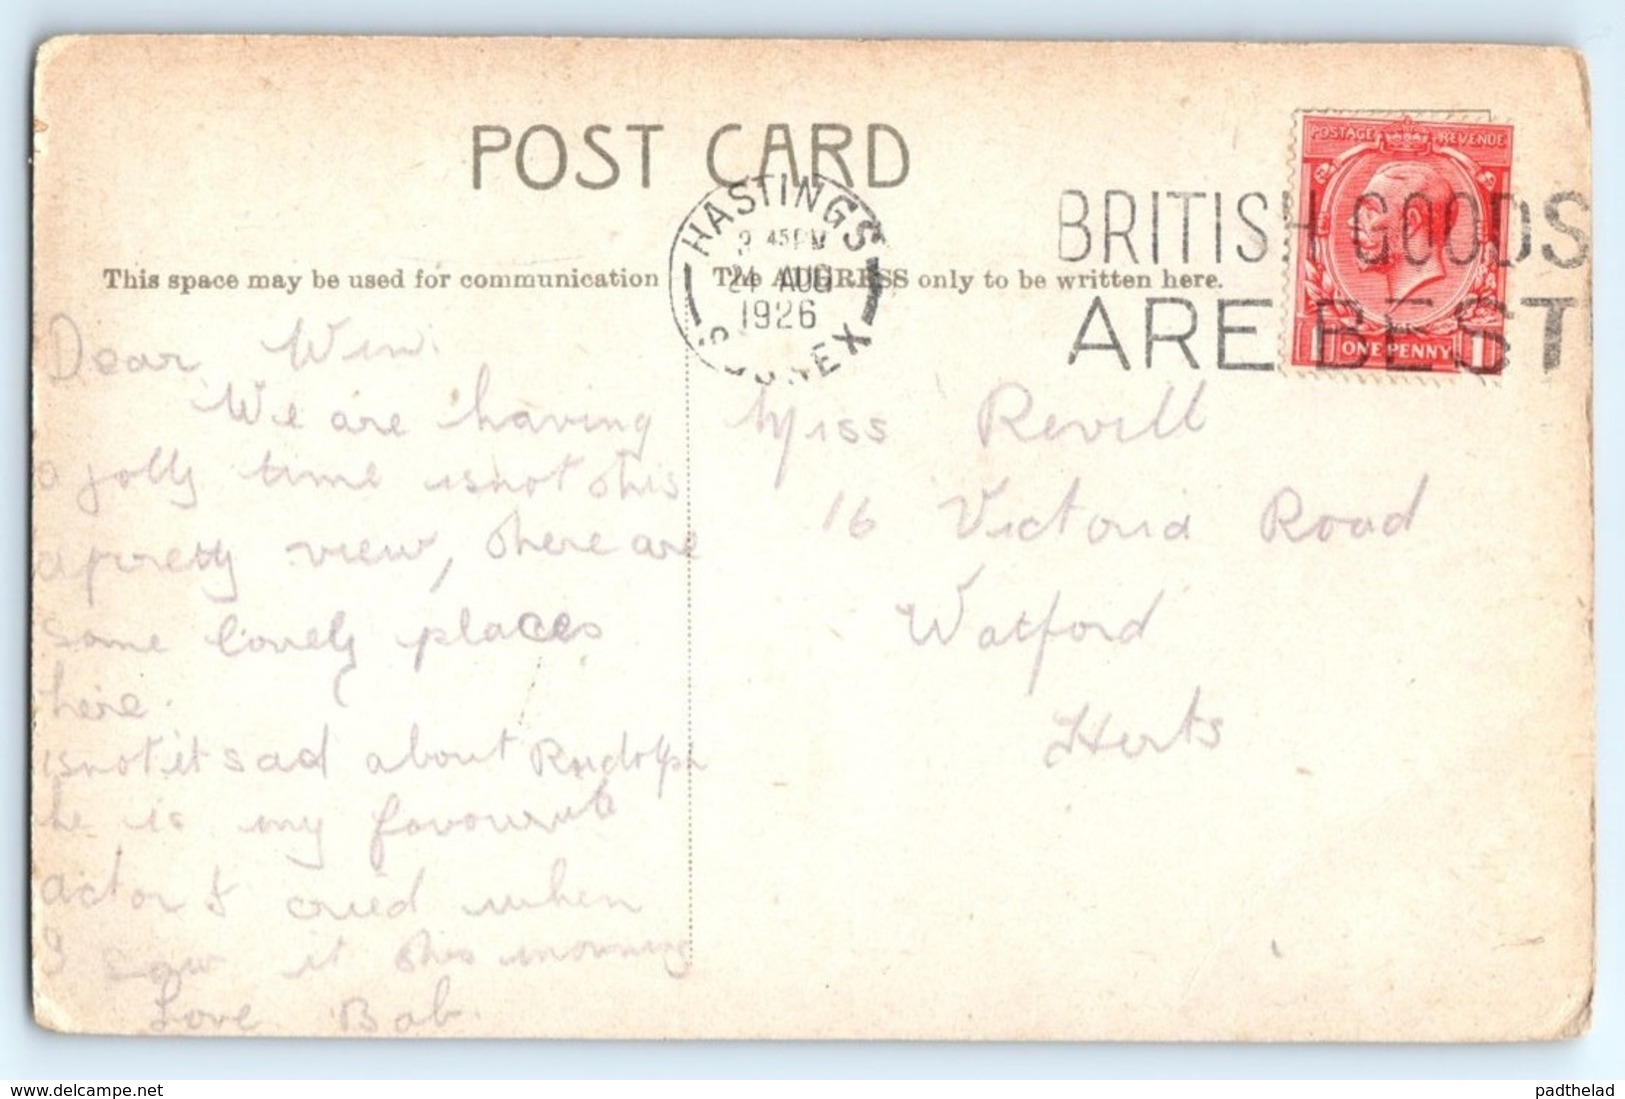 POST CARD
HASTINGS
3 45 PM
24 AUG
1926
SUSSEX
BRITISH GOODS
ARE BEST
POSTAGE REVENUE
1 ONE PENNY 1
This space may be used for communication
The ADDRESS only to be written here.
Dear Win.
We are having
a jolly time isnot this
a pretty view, there are
some lovely places
here.
isnot it sad about Rudolph
he is my favourite
actor I cried when
I saw it this morning
Love Bab.
Miss Revill
16 Victoria Road
Watford
Herts
www.delcampe.net
padthelad